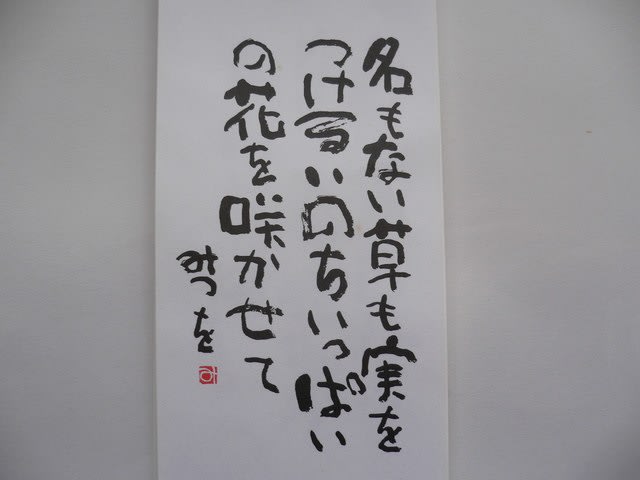 名もない草も実を
つけるいのちいっぱい
の花を咲かせて
みつを
み